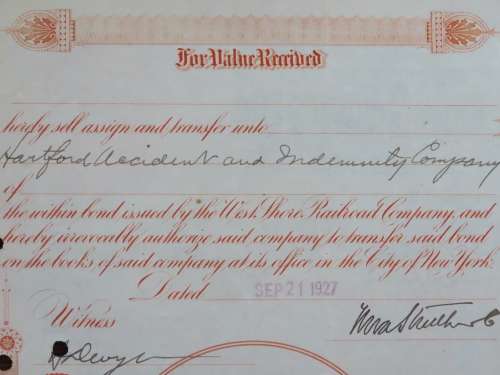 For Value Received
hereby sell assign and transfer unto
Hartford Accident and Indemnity Company
of
the within bond issued by the West Shore Railroad Company, and
hereby irrevocably authorize said company to transfer said bond
on the books of said company at its office in the City of New York.
Dated SEP 21 1927
Witness